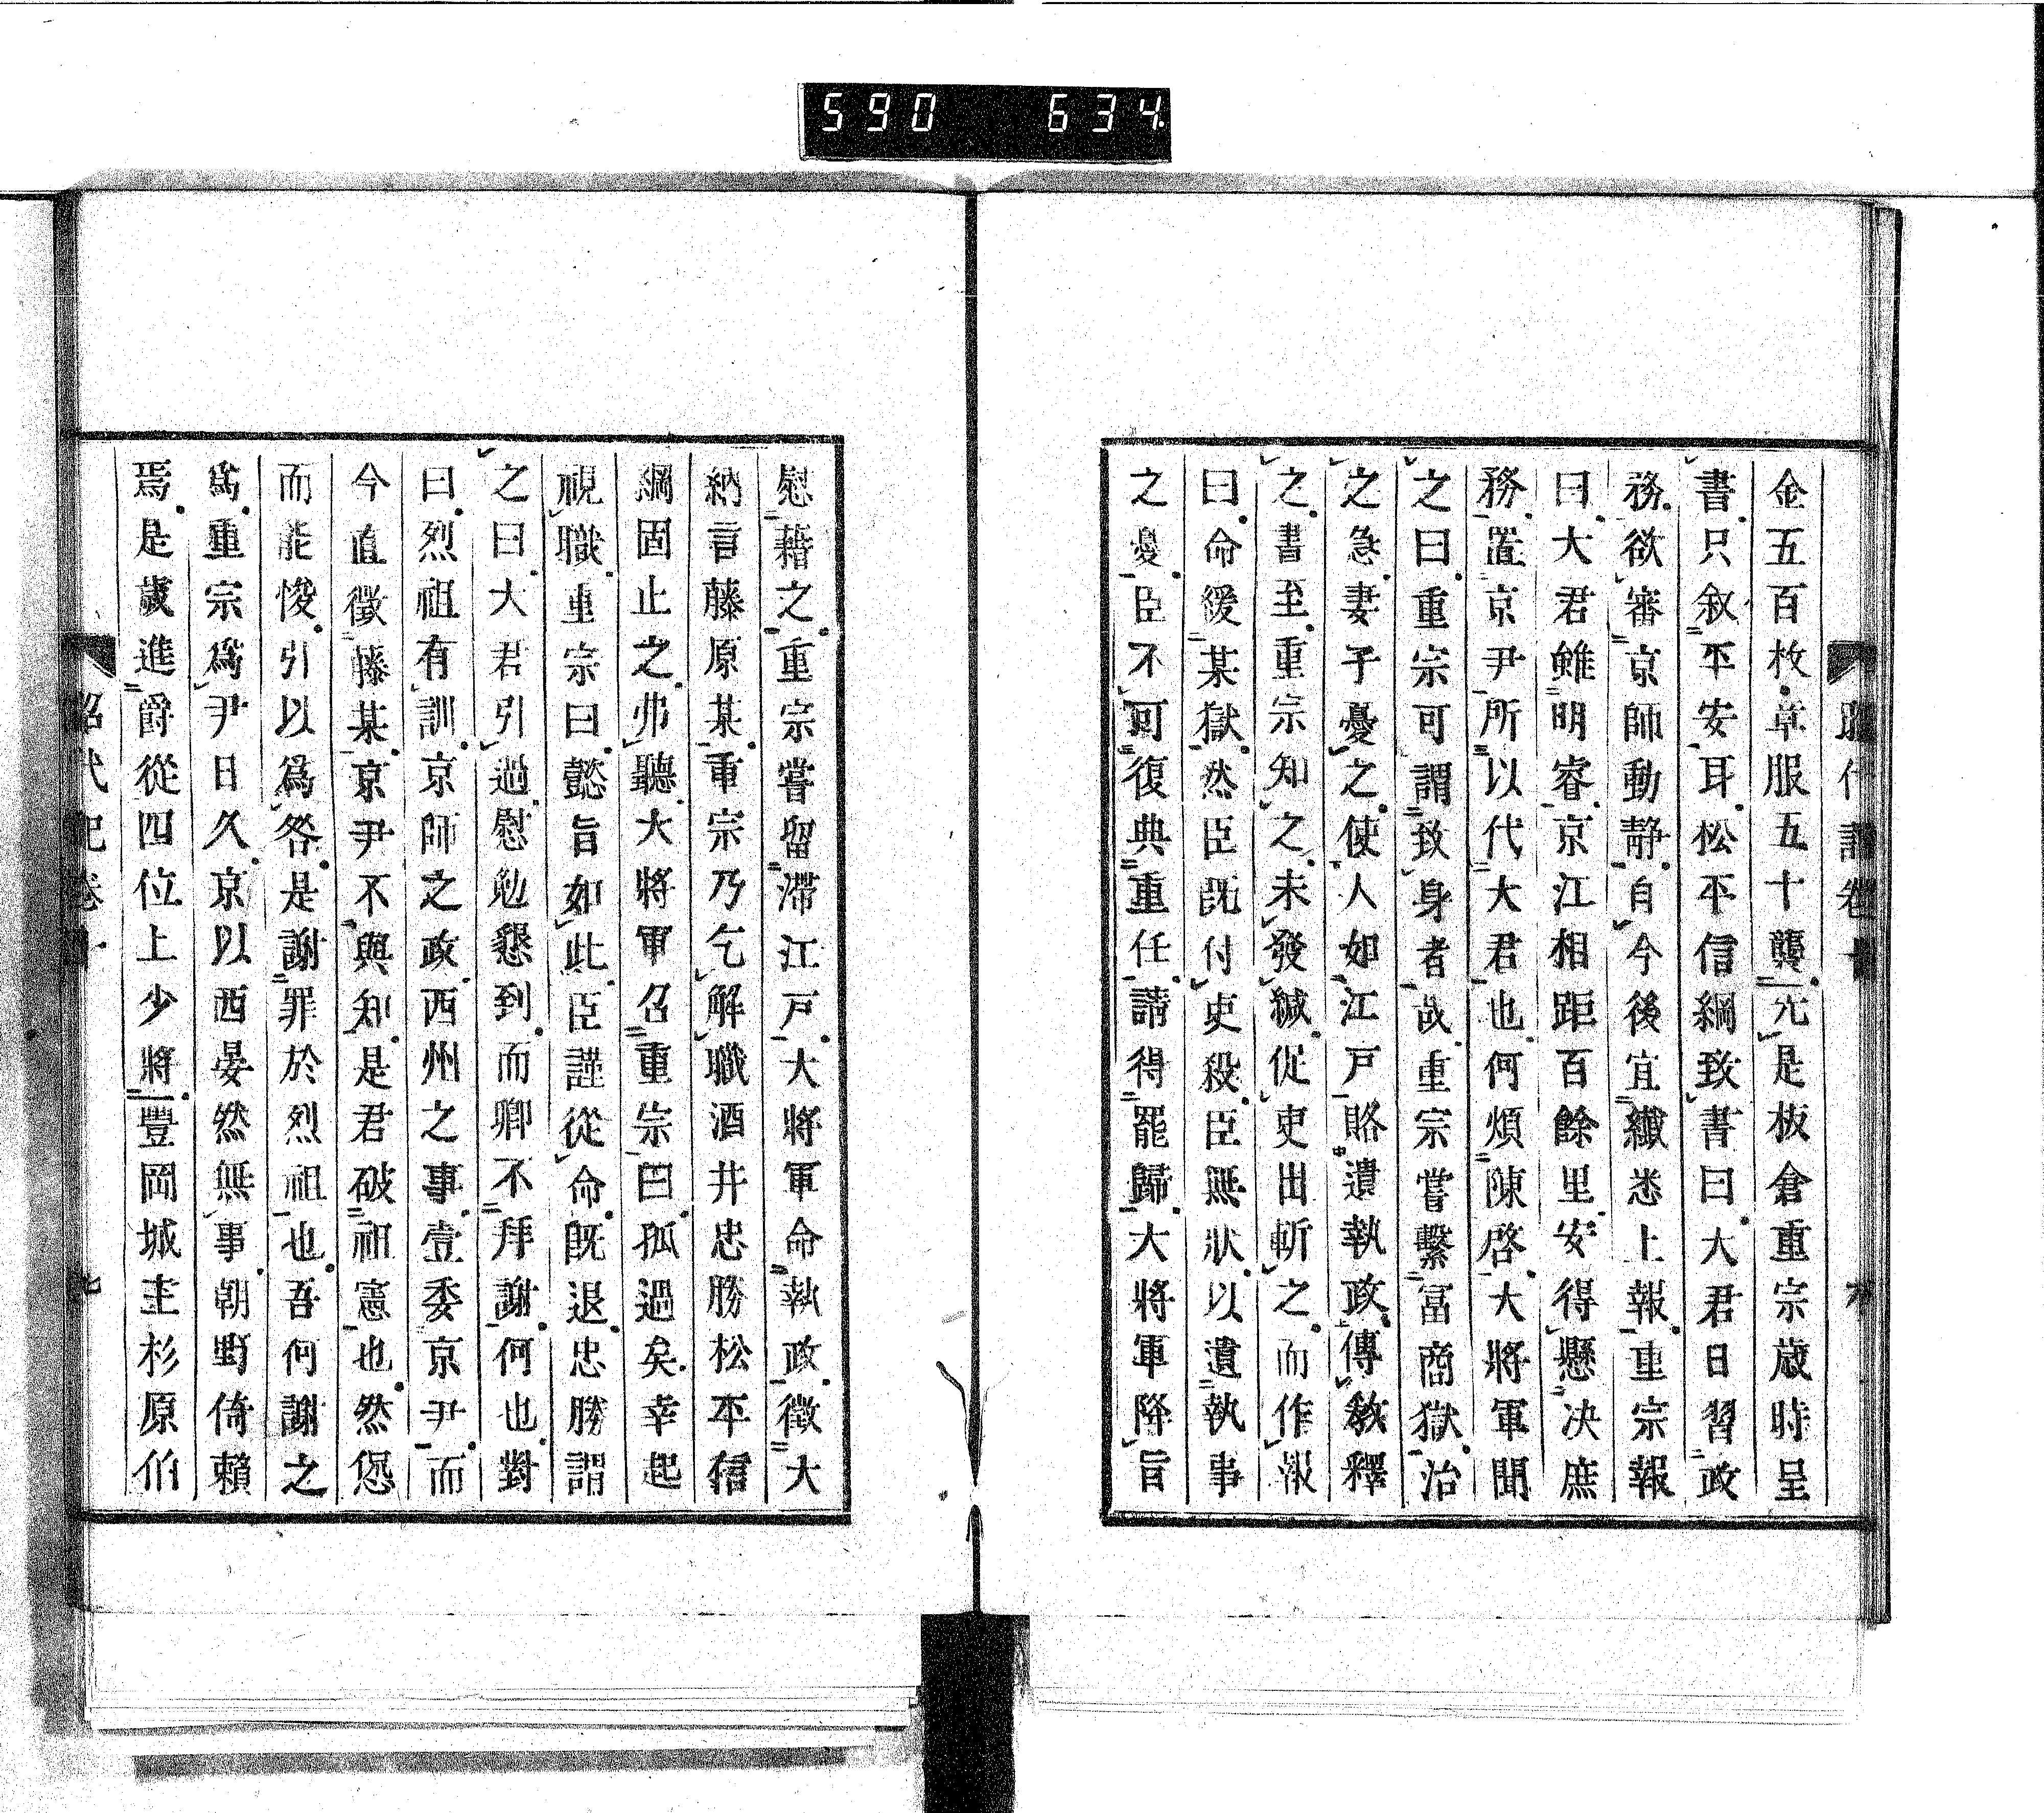 590 634
金五百枚章服五十襲先是板倉重宗歲時呈
書只敘平安耳松平信綱致書曰大君日習政
務欲審京師動静自今後宜纖悉上報重宗報
曰大君雖明睿京江相距百餘里安得懸决庶
務置京尹所以代大君也何煩陳啓大將軍聞
之曰重宗可謂致身者哉重宗嘗繫冨商獄治
之急妻子憂之使人如江戸賂遺執政傳教釋
之書至重宗知之未發緘促吏出斬之而作報
曰命緩某獄然臣既付吏殺臣無狀以遺執事
之憂臣不可復典重任請得罷歸大將軍降旨
慰藉之重宗嘗留滞江戸大將軍命執政徵大
納言藤原某重宗乃乞解職酒井忠勝松平信
綱固止之弗聽大將軍召重宗曰孤過矣幸起
視職重宗曰懿旨如此臣謹從命既退忠勝謂
之曰大君引過慰勉懇到而卿不拜謝何也對
曰烈祖有訓京師之政西州之事壹委京尹而
今直徵藤某京尹不與知是君破祖憲也然愆
而能悛引以爲咎是謝罪於烈祖也吾何謝之
爲重宗爲尹日久京以西晏然無事朝野倚賴
焉是歲進爵從四位上少將豐岡城主杉原伯
昭代記卷十
七